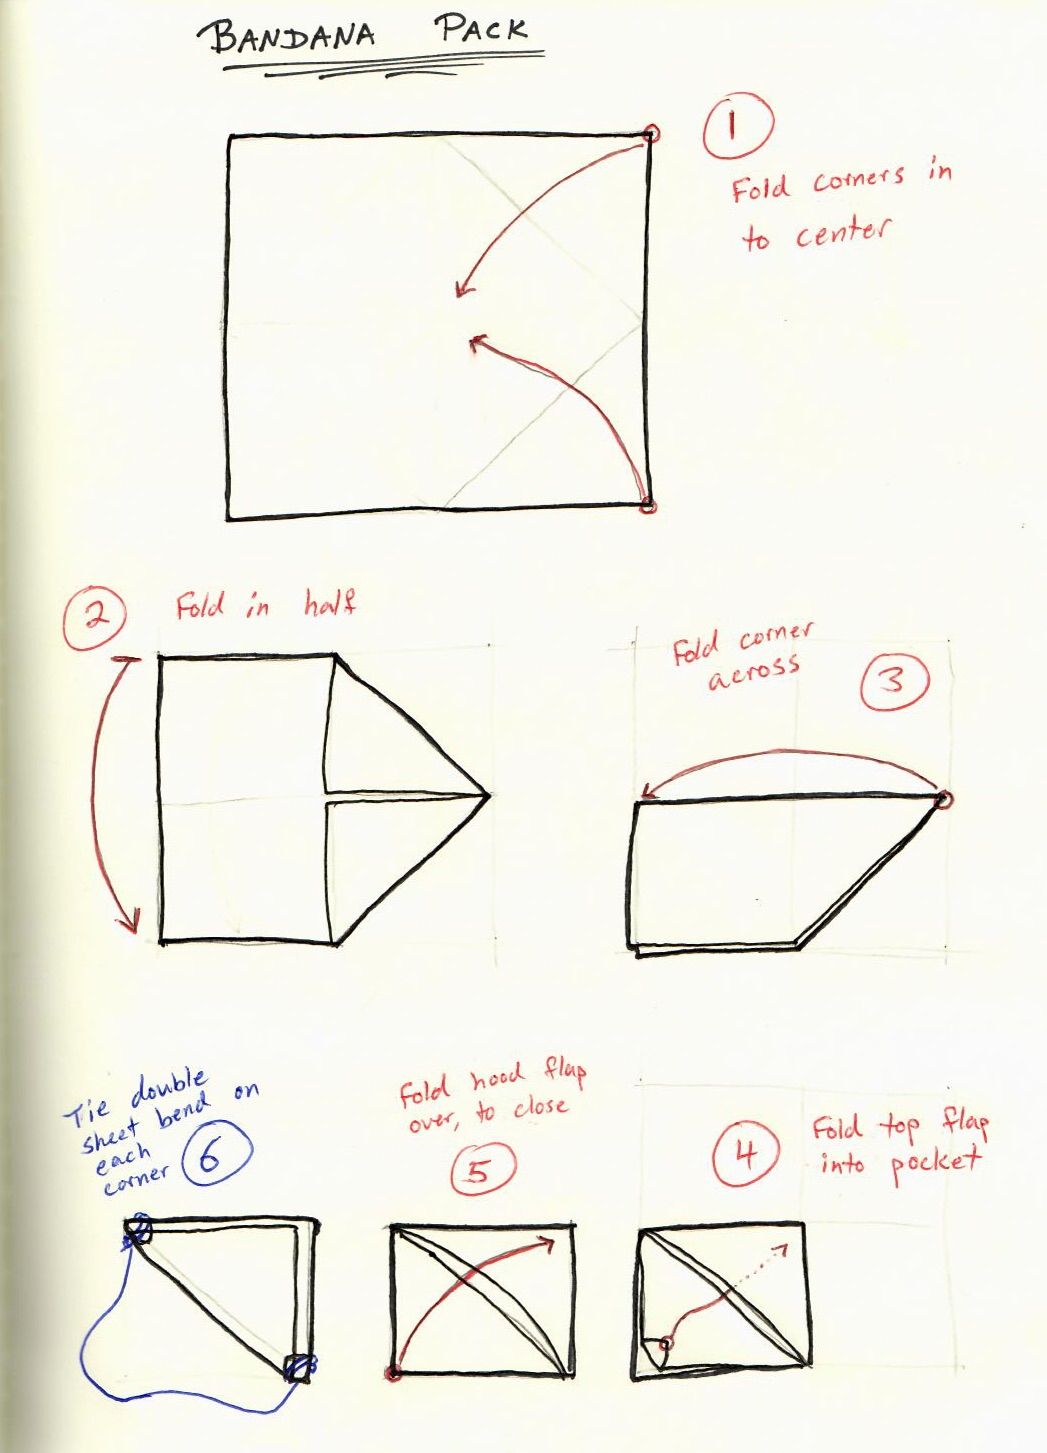 BANDANA PACK
1
Fold corners in
to center
2
Fold in half
Fold corner
across
3
Tie double
sheet bend on
each
corner
6
Fold hood flap
over, to close
5
4
Fold top flap
into pocket